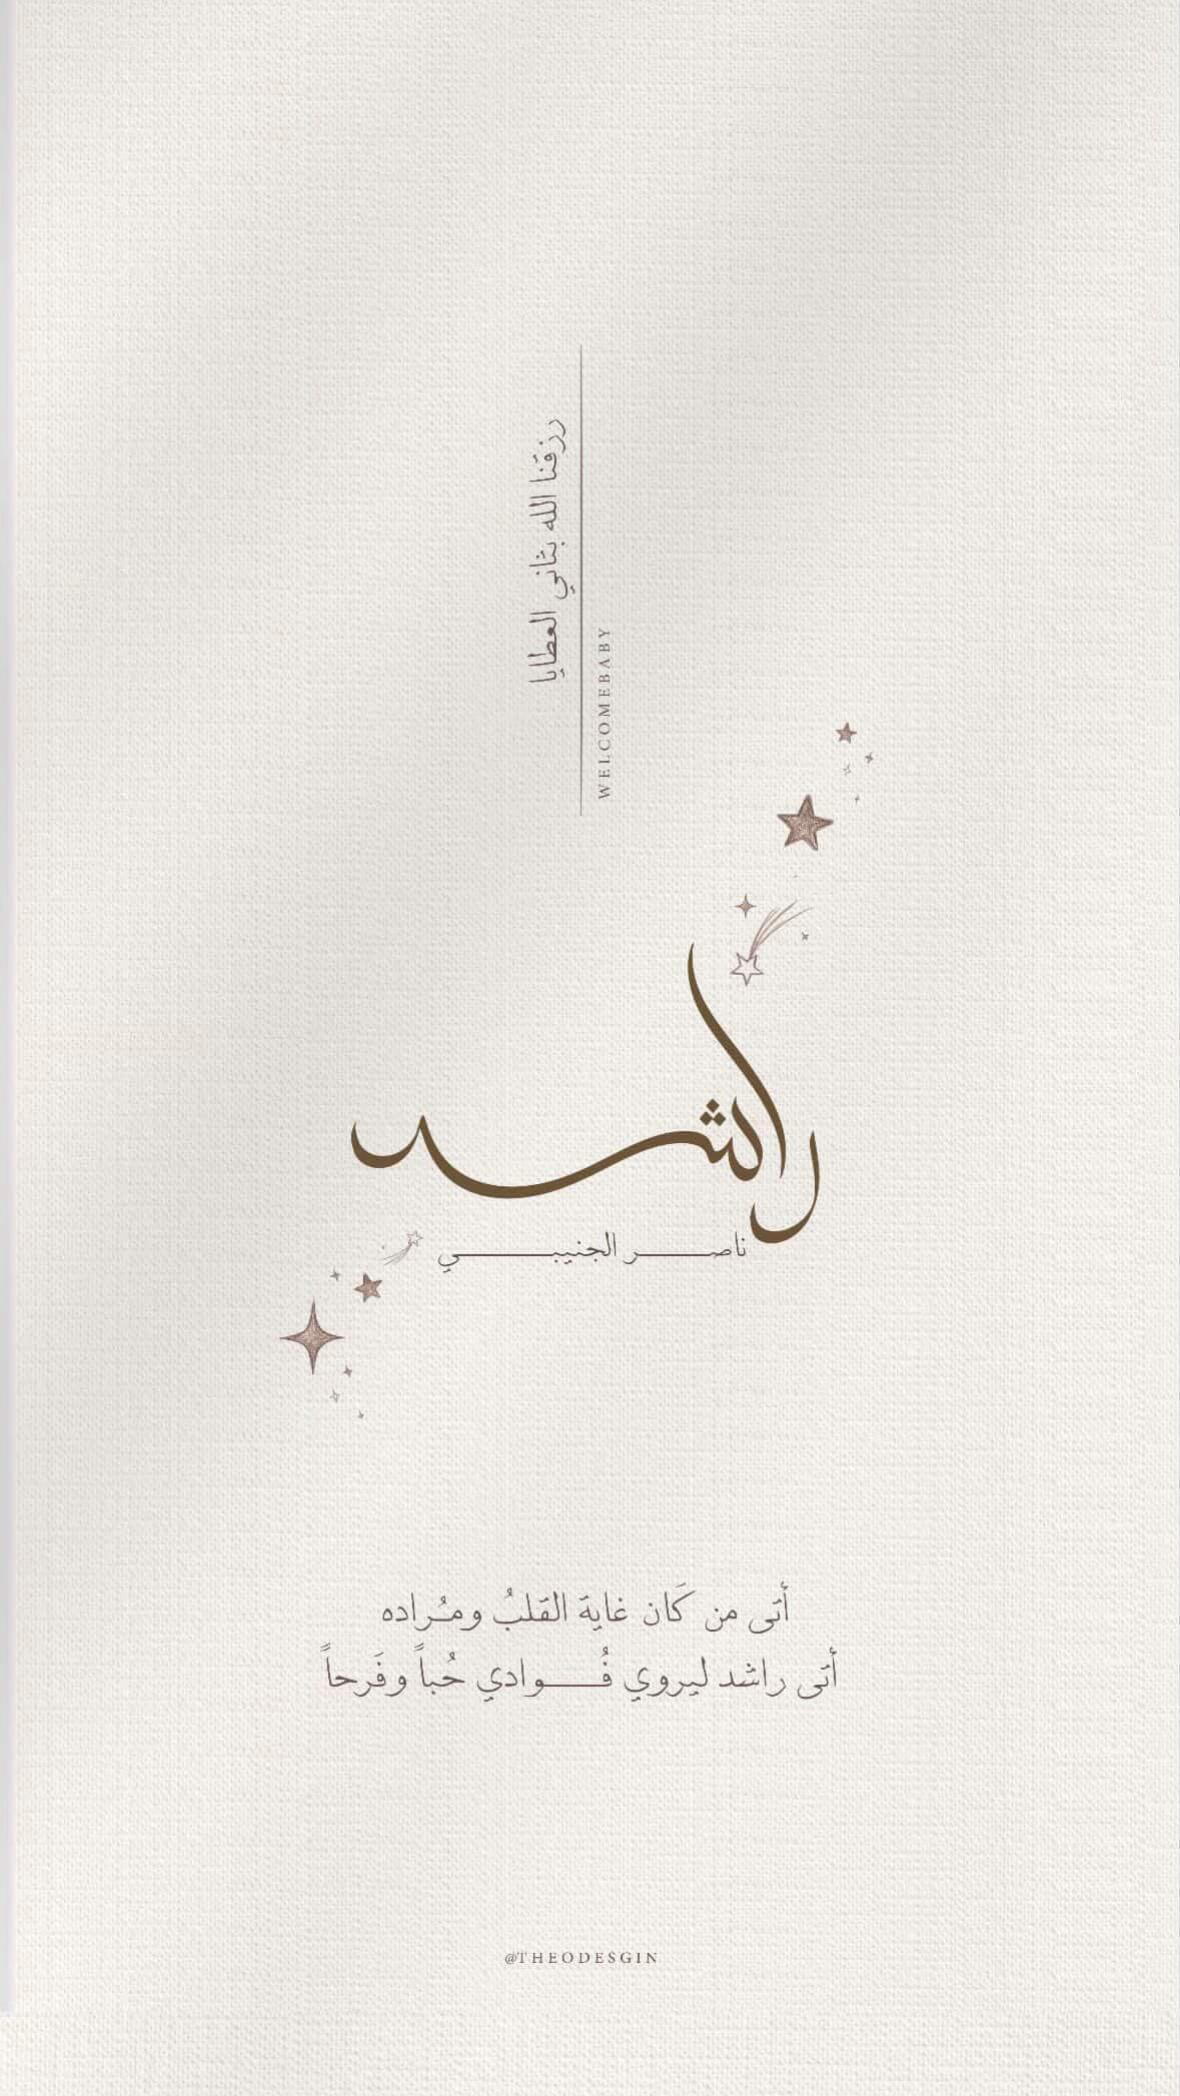 رزقنا الله بثاني العطايا
WELCOMEBABY
راشد
ناصر الجنيبي
أتى من كَان غاية القلبُ ومُراده
أتى راشد ليروي فُوادي حُباً وفَرحاً
@THEODESGIN